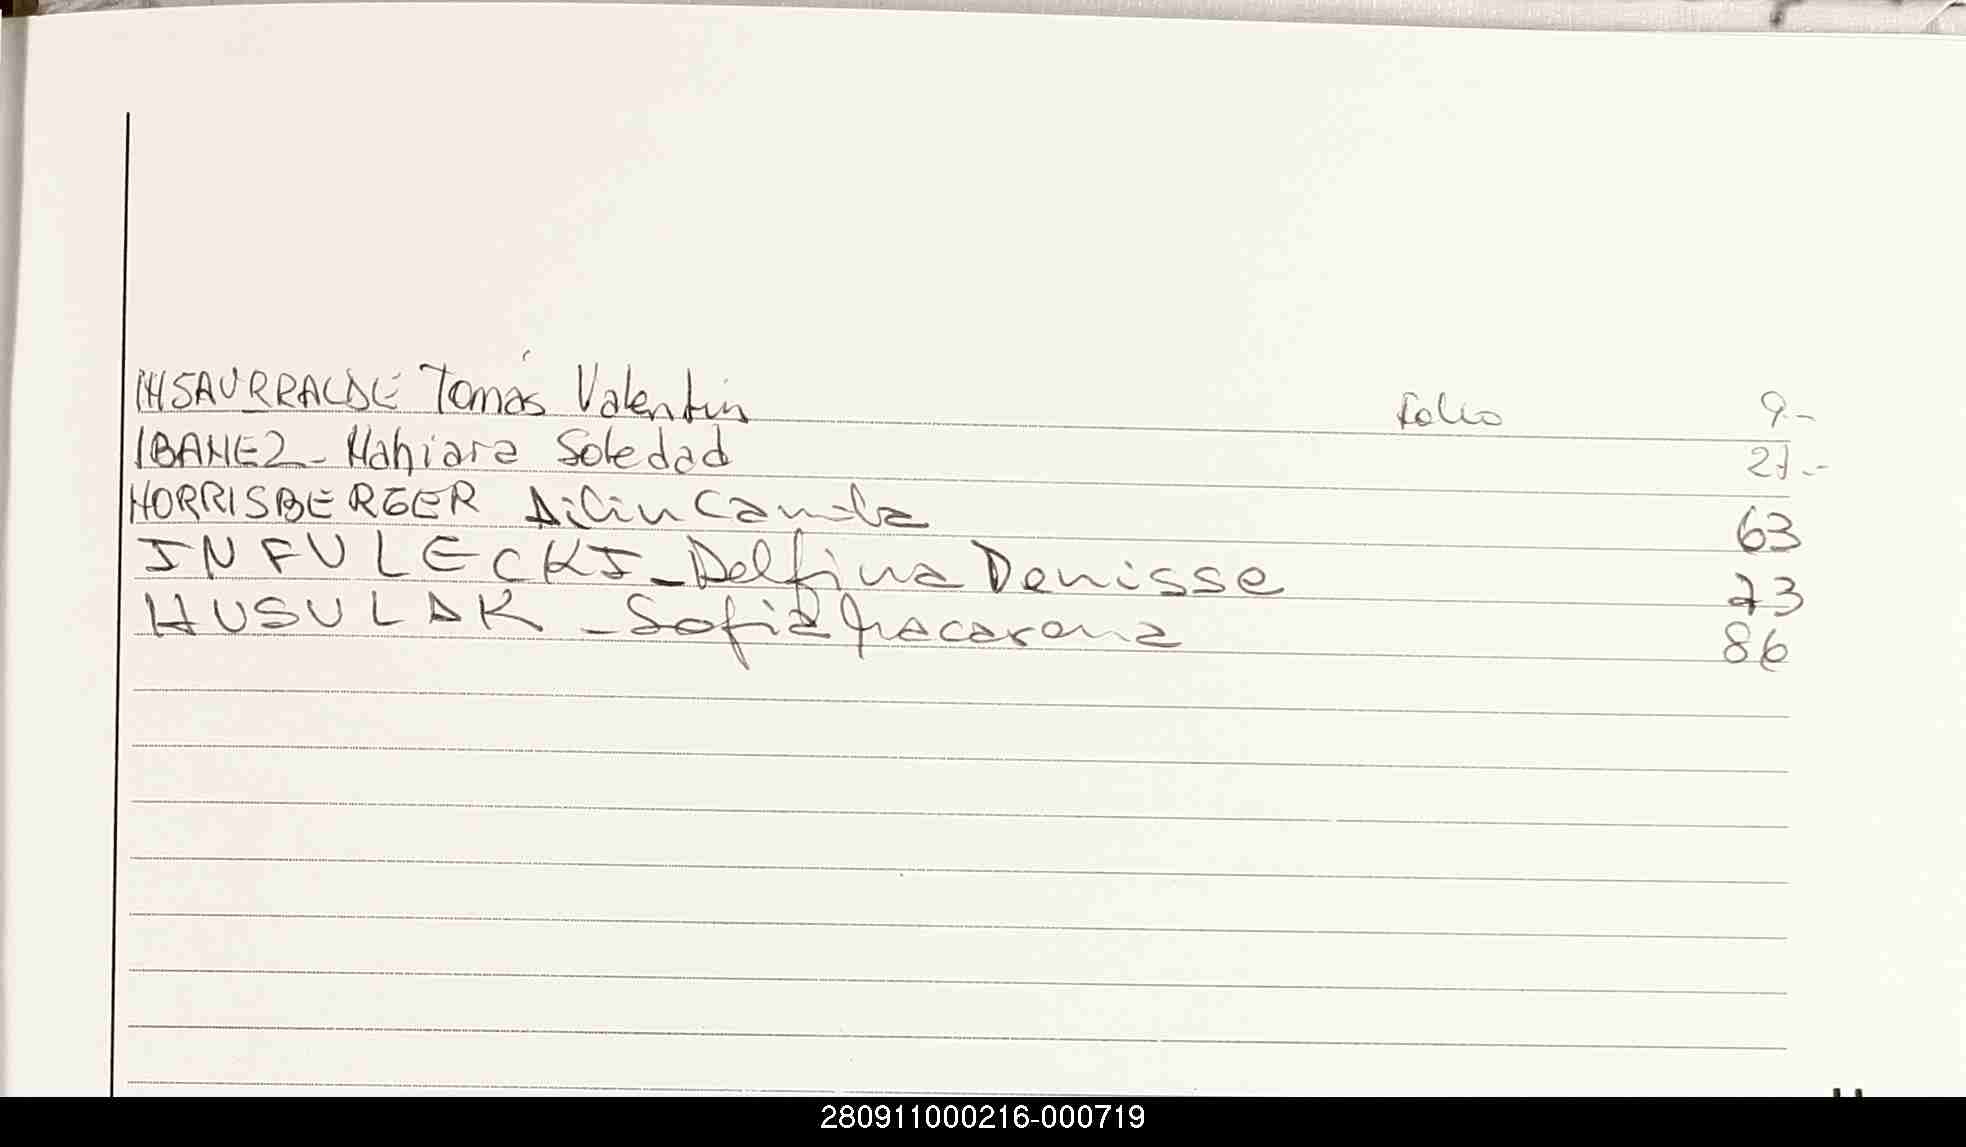 INSAURRALDE Tomás Valentin folio 9.-
IBAÑEZ - Nahiara Soledad 27.-
HORRISBERGER Ailin Camila 63
INFULECKI - Delfina Denisse 73
HUSULAK - Sofia Macarena 86
280911000216-000719